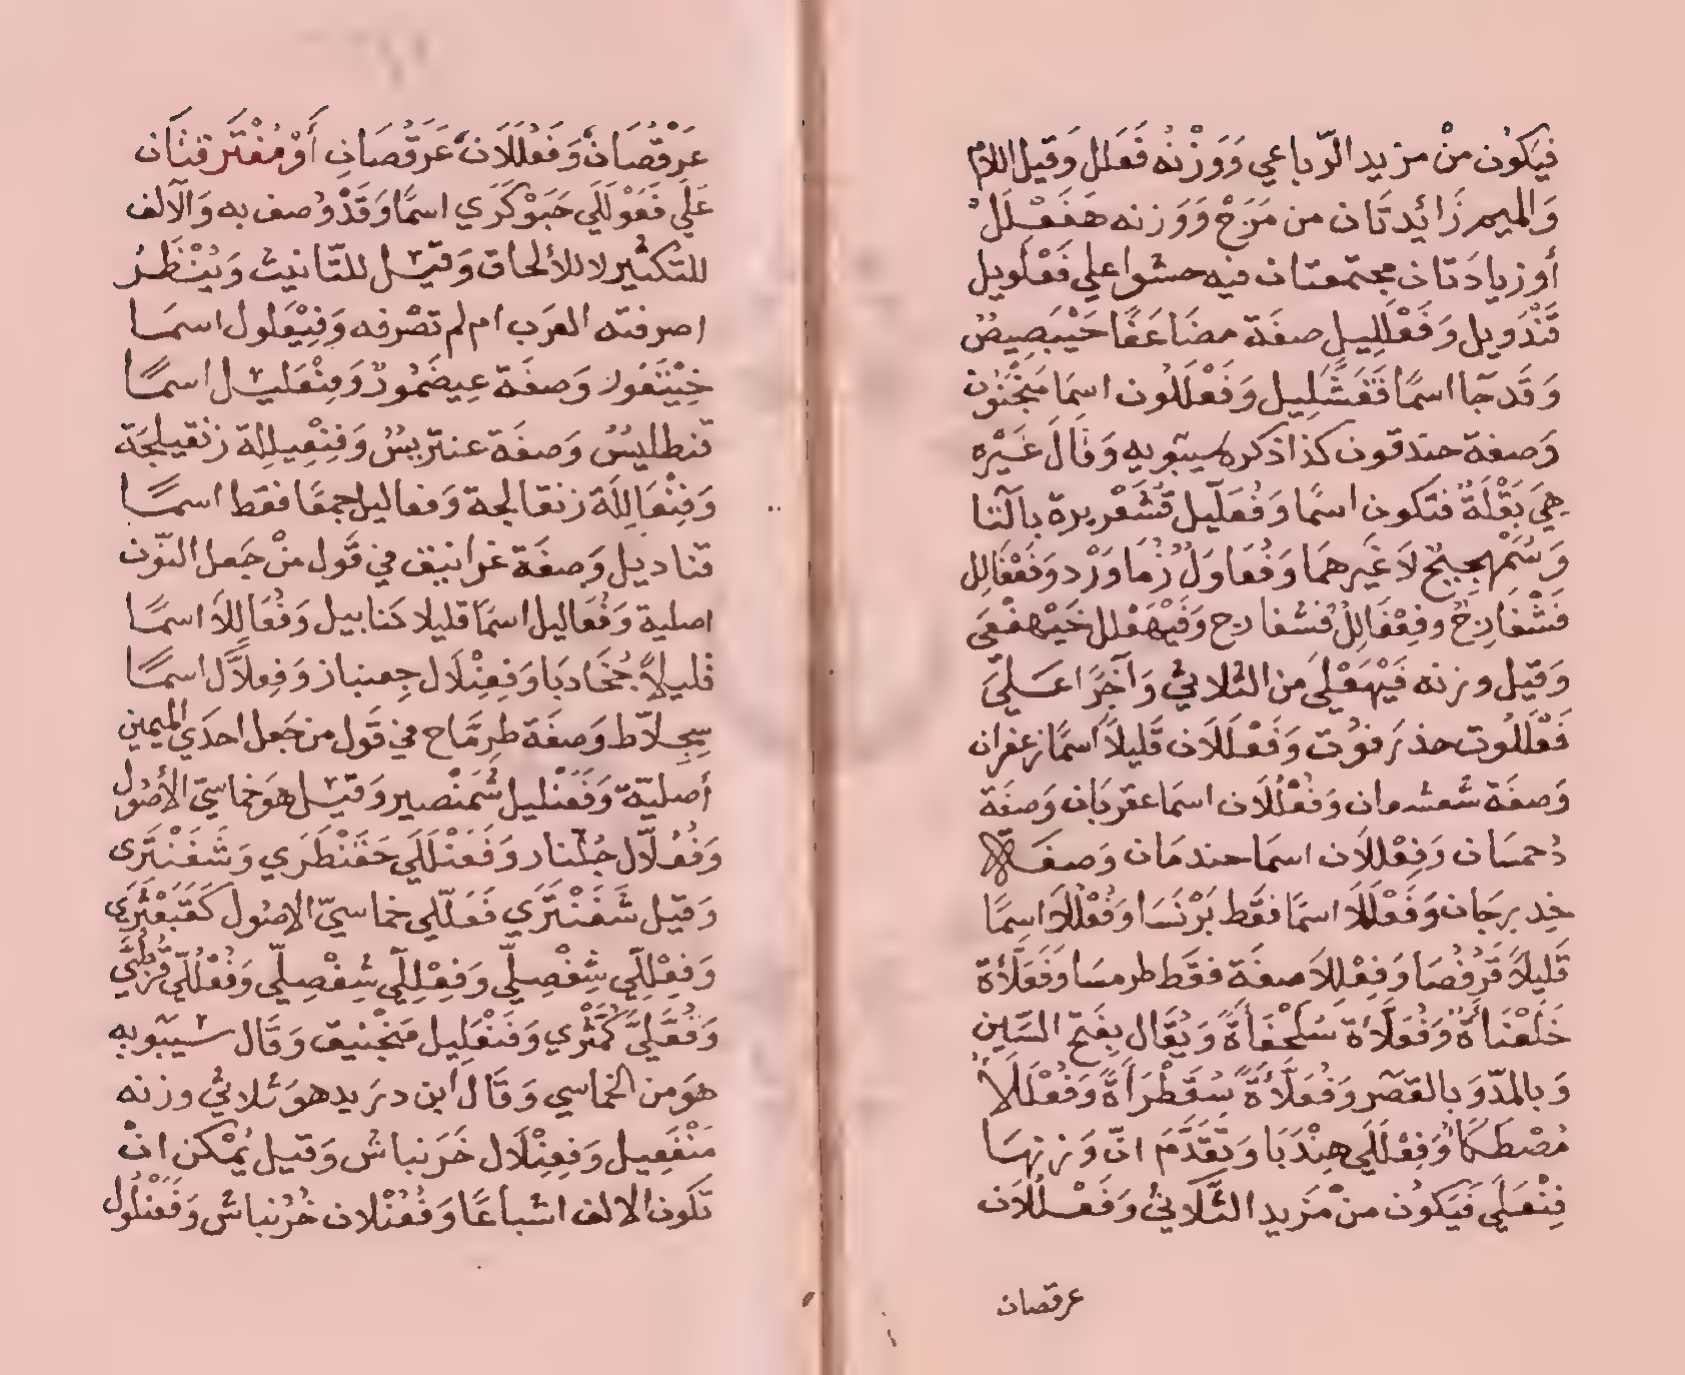 فيَكوُن منْ مزيد الرّباعي وَوَزْنُه فَعَلل وَقيل اللام
وَالميم زَائدتَان من مَرَحْ وَوَزنه هَفَعْلَل
أو زيادَتان مجتمعتان فيه حشوا علي فَعْلَويل
قَنْدَويل وَفَعْلَليل صفَة مضَاعَفًا خَيْبَصِيصٌ
وَقَد جَا اسمًا قَفَشَّليل وَفَعْلَلُون اسمَا مَنْجَنُون
وَصفة حندقون كذا ذكره سيبَويه وَقالَ غَيْره
هِيَ بَقْلَةٌ فتكون اسمًا وَفُعَلّيل قُشَعْريرة بالتا
وَسُمَهْجِيجٌ لاَ غَيرهمَا وَفُعَاوَلٌ زُمَاوَرْد وَفَعْفَالِل
فَشْفَارِجٌ وفِعْفَالِلٌ فشفارج وَفَيْهَعْلل خَيْهفْعَي
وَقيل وزنه فَيْهَعْلَي من الثلاثيّ وَآخرًا عَلَي
فَعْلَلُوت حذرَفوُت وَفَعْلَلَان قَليلاً اسمًا زعفران
وَصفَة شعشعان وَفُعْلُلَان اسمَا عقربَان وَصفَة
دُحمسَان وَفِعْلِلَان اسمَا حندمَان وَصفَة
خِدبرجَان وَفَعْلَلَا اسمًا فقَط بَرْنَسَا وَفُعْلُلَا اسِمًا
قَليلاً قرُفُصَا وَفِعْلِلاَ صفَة فقَط طرمسَا وَفَعَلَّاة
خَلَعْنَاةٌ وَفُعَلَّاة سُلَحْفَاةٌ وَيُقَال بفَتح السّين
وَبالمدّ وَبالقصَر وَفُعَلَّاةٌ سُقَطْرَاةً وَفُعْلَلَاً
مُصْطَكَا وَفِعْلَلَي هِنْدَبَا وَتَقَدَّمَ انّ وَزنهَا
فِنْعَلَي فَيَكوُن منْ مَزيد الثّلَاثيْ وَفَعْلُلَان
عرقصان
عَرَقْصَان وَفَعُلَلَان عَرَقُصَان أَوْ مُفْتَرقتَان
عَلَي فَعَوْلَلَي حَبَوْكَرَي اسمًا وَقَدْ وُصف به وَالألف
للتكثير لا للألحاق وَقيل للتّانيث وَيُنْظَرُ
اصرفته العرَب ام لم تصْرفه وَفِيْعَلول اسمَا
خِيْتَعَور وَصفَة عِيضَمُوز وَفَنْعَليل اسمًا
قنطليسٌ وَصفَة عنتريسٌ وَفِنْعِيلِلة زنقيلجَة
وَفِنْعَالِلَة زنقالجة وَفعاليل جمعًا فقط اسمًا
قناديل وَصفَة غرانيق في قَول منْ جَعل النّون
اصلية وَفُعَاليل اسمًا قليلا كنابيل وَفُعَالِلاَ اسمًا
قليلاً جُخَادبَا وَفِعِنْلَال جِعنبار وَفِعِلّاَل اسمًا
سِجِلاّط وَصفَة طرمَّاح في قَول من جَعل احدَي الميمين
أصليّة وَفَعَنْليل شُمَنْصير وَقيل هوَ خماسيّ الأصُول
وَفُعُلّال جُلّنار وَفَعَنْلَلَي حَفَنْطَرَي وَشَفَنْتَرَى
وَقيل شَفَنْتَرَي فَعَلّلي خماسيّ الاصُول كَقَبَعْثَرَى
وَفِعْلِلّي شِفْصِلِّي وَفِعْلِلّي سِفْصِلّي وَفُعْلُلّي قُرْطُبَّي
وَفُعَّلَّي كُمَّثْري وَفَنْعَليل مَنجْنيق وَقَال سيبَويه
هوَ من الخماسي وَقَالَ ابن درَيد هوَ ثلاثيْ وزنه
مَنْفَعِيل وَفَعِنْلَال خَرَنباش وَقيل يُمْكن انْ
تكون الالف اشباعًا وَفُعُنْلان خُرُنباش وَفَعَنْلُول